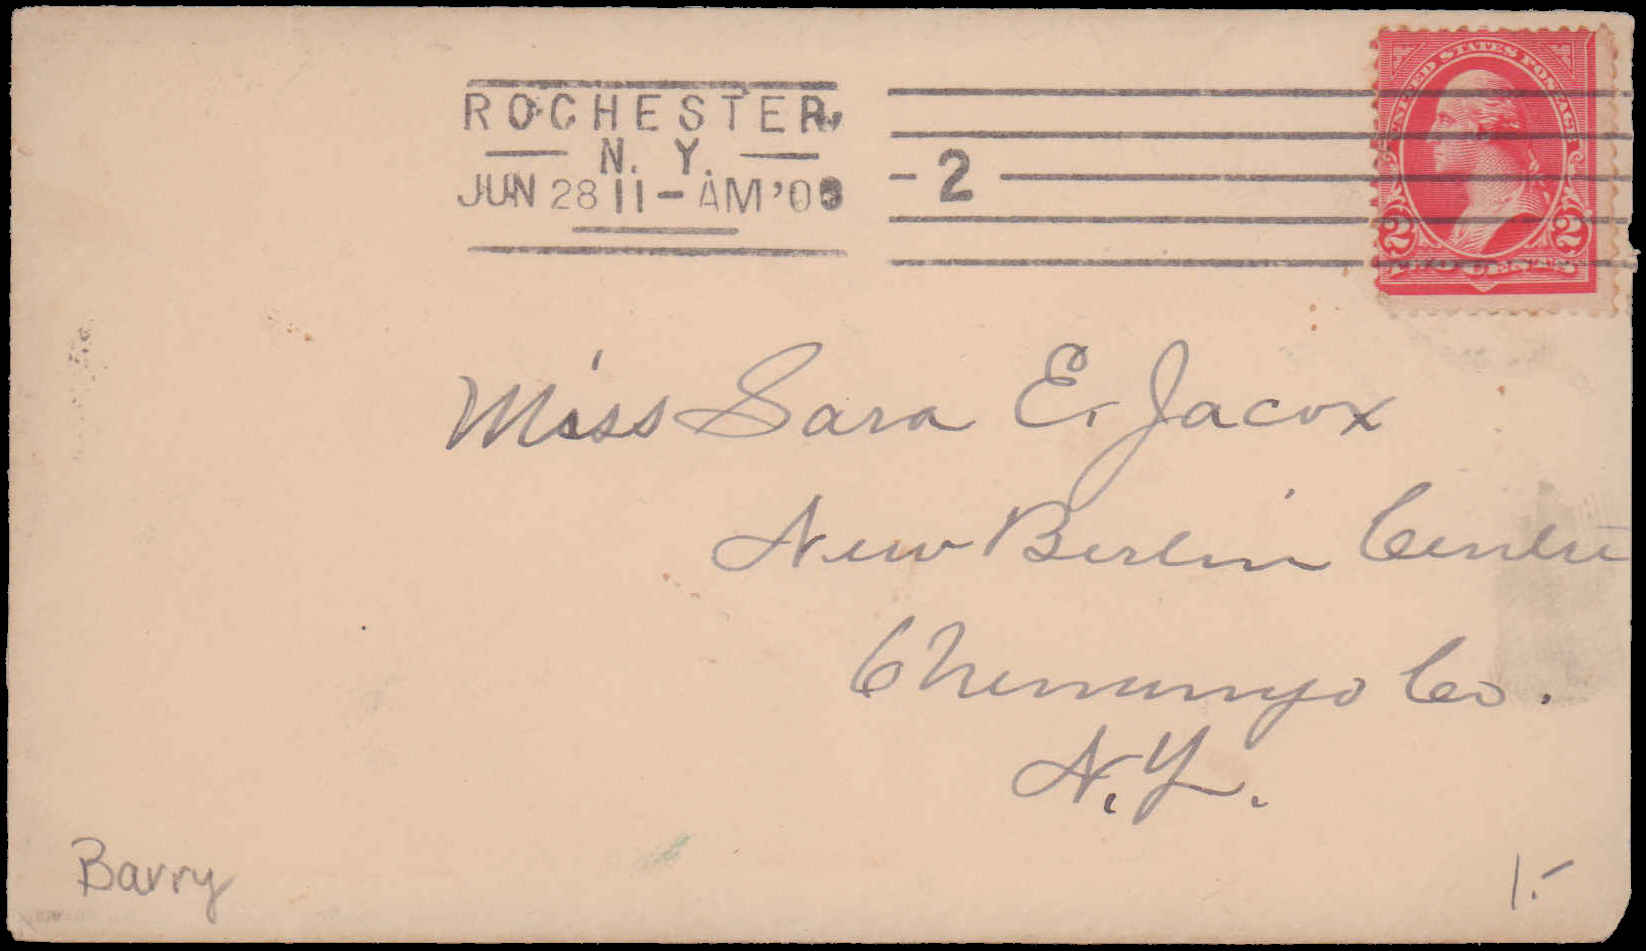 ROCHESTER,
N. Y.
JUN 28 11-AM '00
2
UNITED STATES POSTAGE
2 2
TWO CENTS
Miss Sara E. Jacox
New Berlin Centre
Chenango Co.
N.Y.
Barry
1.-